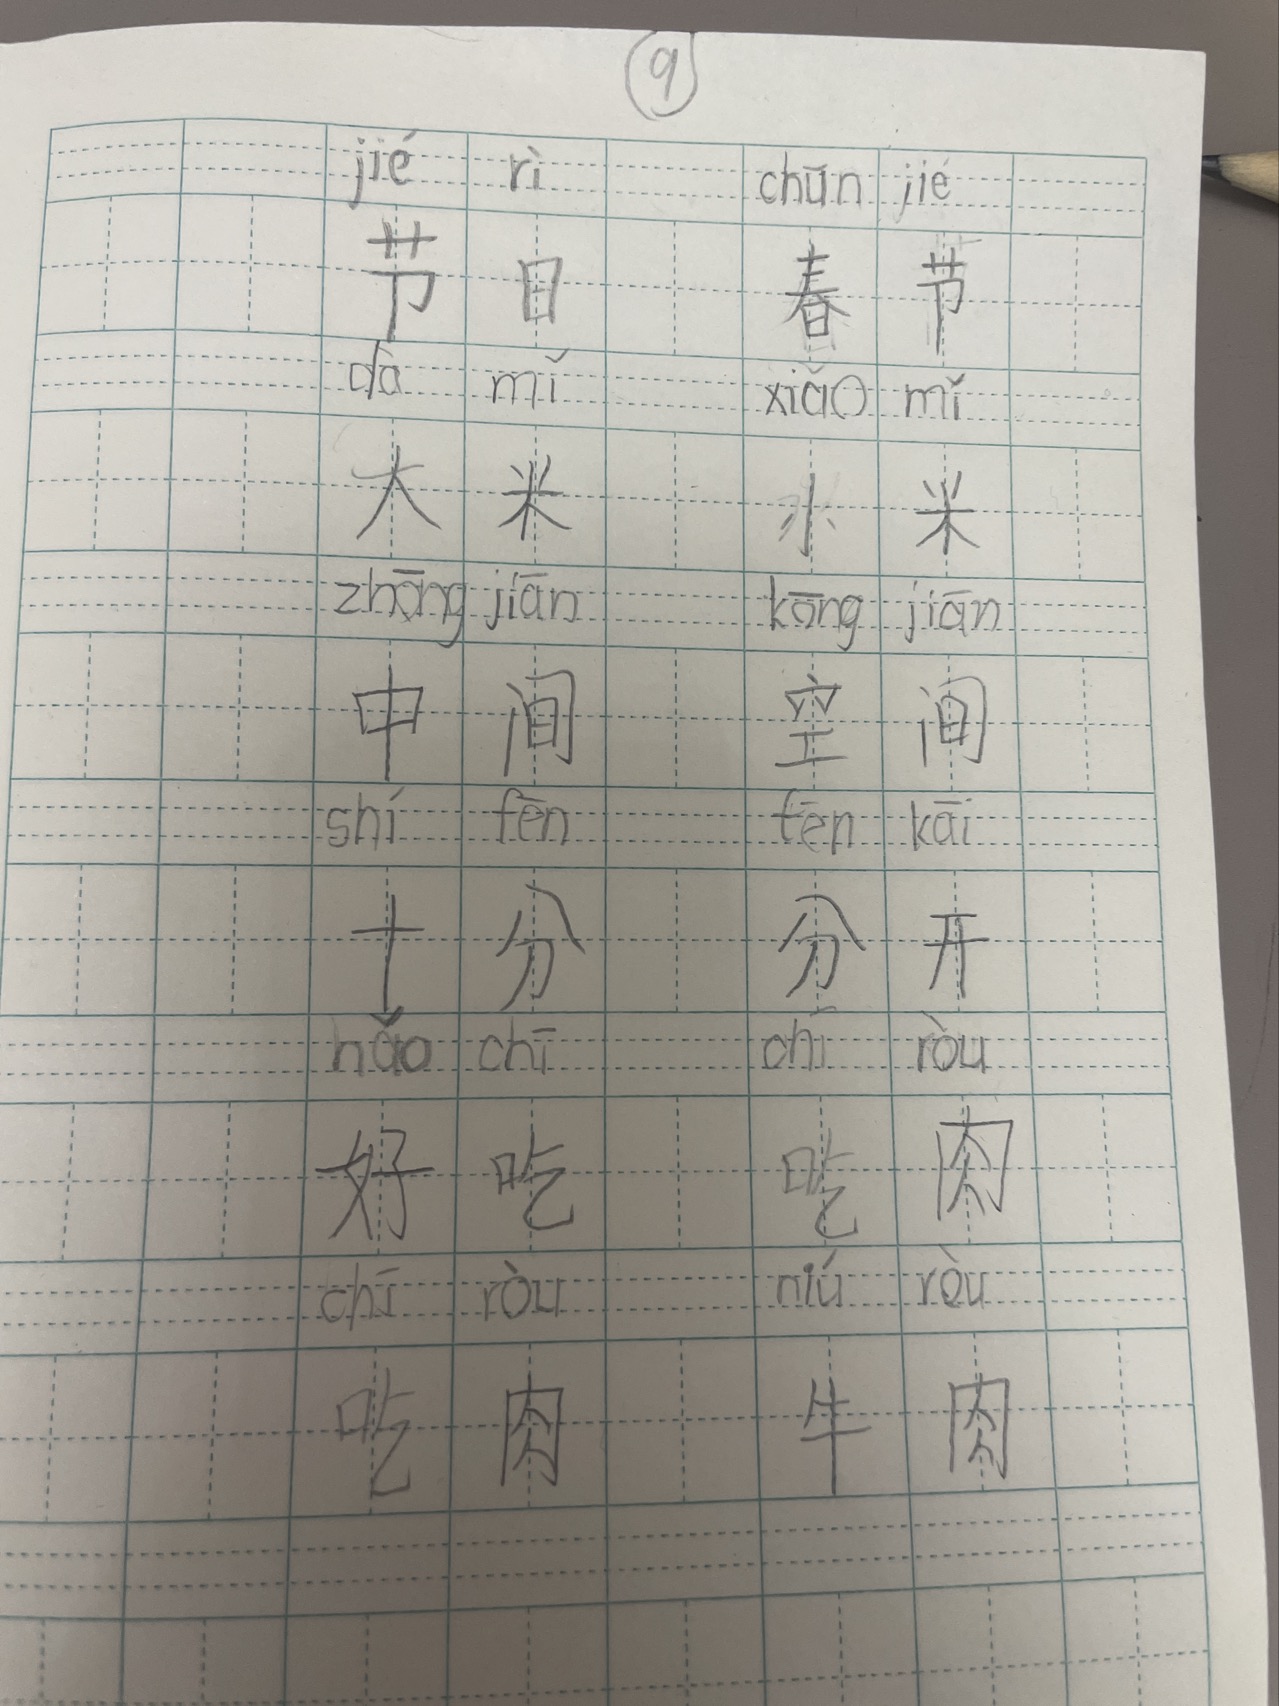 9
jié rì chūn jié
节日 春节
dà mǐ xiǎo mǐ
大米 小米
zhōng jiān kōng jiān
中间 空间
shí fēn fēn kāi
十分 分开
hǎo chī chī ròu
好吃 吃肉
chī ròu niú ròu
吃肉 牛肉